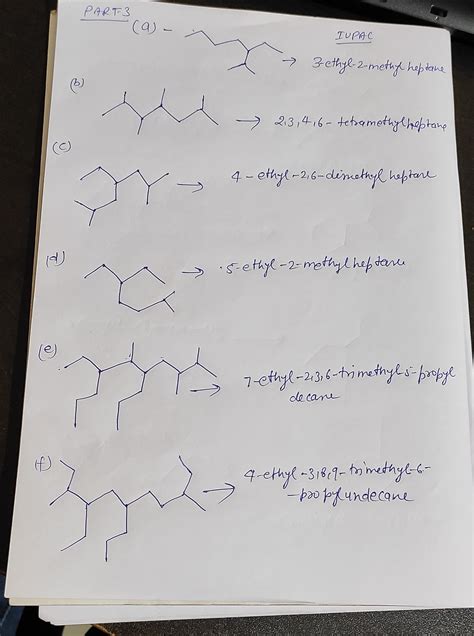 PART-3
(a)
IUPAC
3-ethyl-2-methylheptane
(b)
2,3,4,6-tetramethylheptane
(c)
4-ethyl-2,6-dimethylheptane
(d)
5-ethyl-2-methylheptane
(e)
7-ethyl-2,3,6-trimethyl-5-propyl
decane
(f)
4-ethyl-3,8,9-trimethyl-6-
-propylundecane